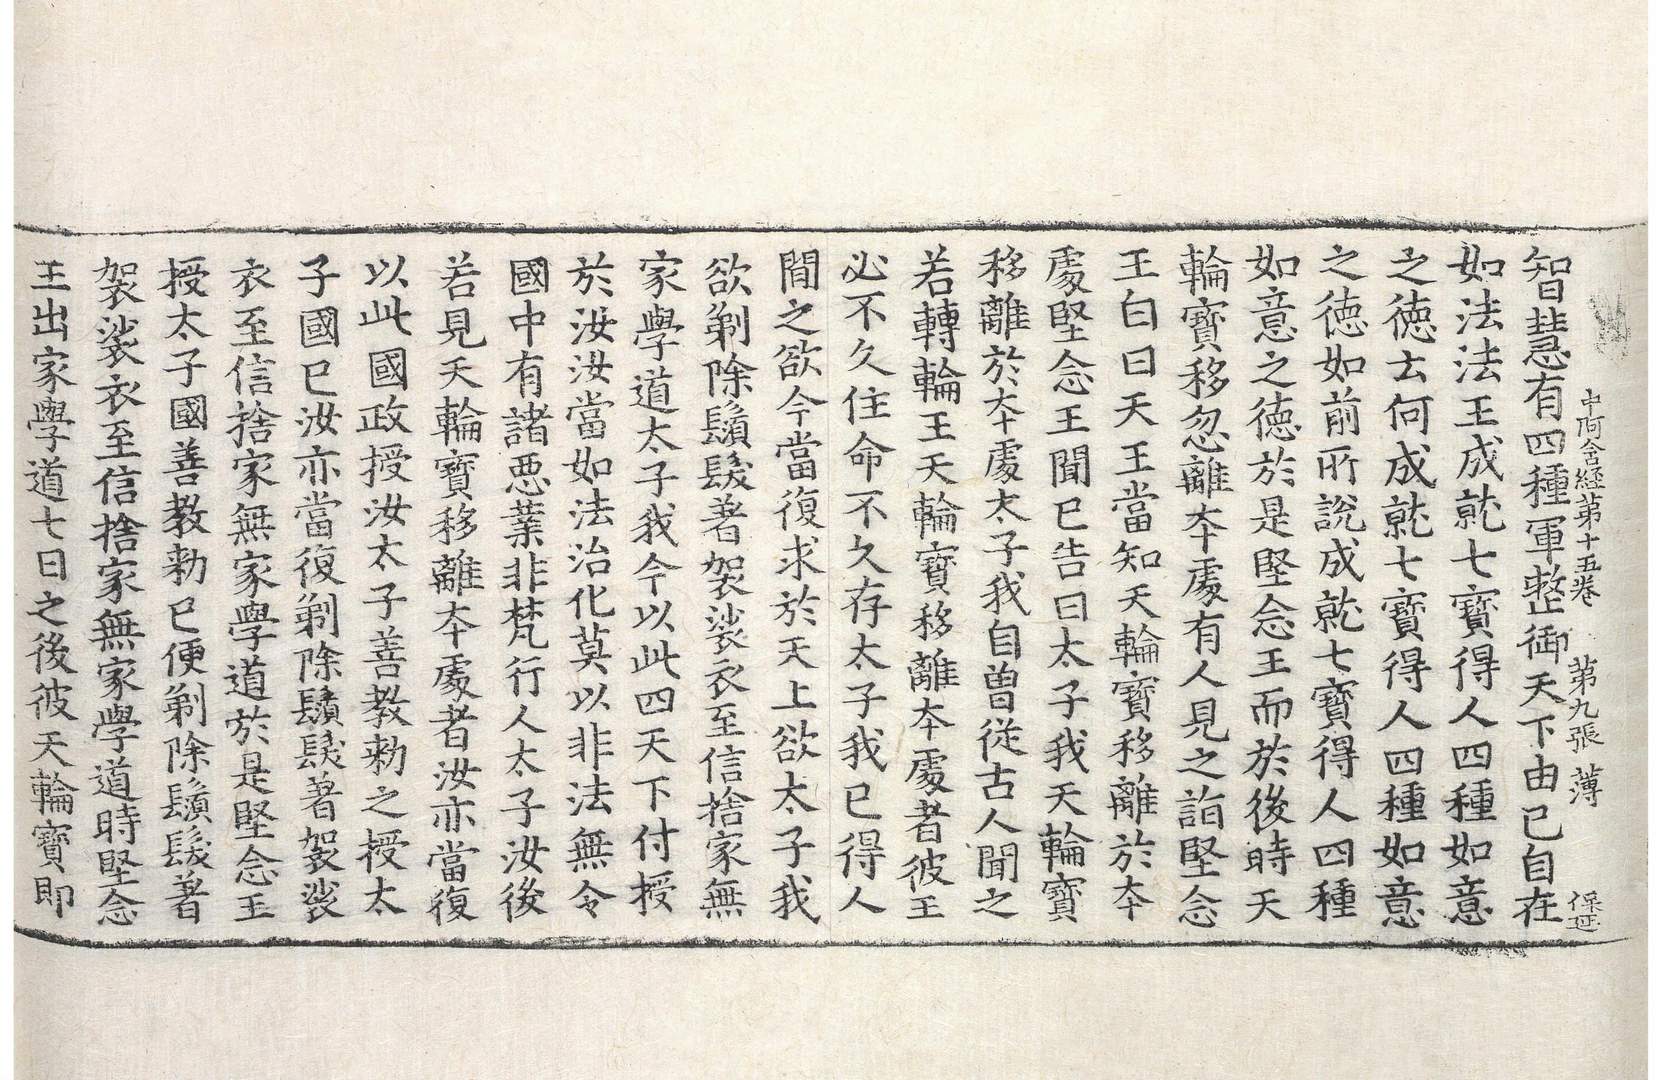 中阿含経第十五卷 第九張 薄 保延
智慧有四種軍整御天下由已自在
如法法王成就七寶得人四種如意
之徳云何成就七寶得人四種如意
之徳如前所說成就七寶得人四種
如意之徳於是堅念王而於後時天
輪寶移忽離夲處有人見之詣堅念
王白曰天王當知天輪寶移離於夲
處堅念王聞已告曰太子我天輪寶
移離於夲處太子我自曽從古人聞之
若轉輪王天輪寶移離夲處者彼王
必不久住命不久存太子我已得人
間之欲今當復求於天上欲太子我
欲剃除鬚髮著袈裟衣至信捨家無
家學道太子我今以此四天下付授
於汝汝當如法治化莫以非法無令
國中有諸悪業非梵行人太子汝後
若見天輪寶移離夲處者汝亦當復
以此國政授汝太子善教勑之授太
子國已汝亦當復剃除鬚髮著袈裟
衣至信捨家無家學道於是堅念王
授太子國善教勑已便剃除鬚髮著
袈裟衣至信捨家無家學道時堅念
王出家學道七日之後彼天輪寶即